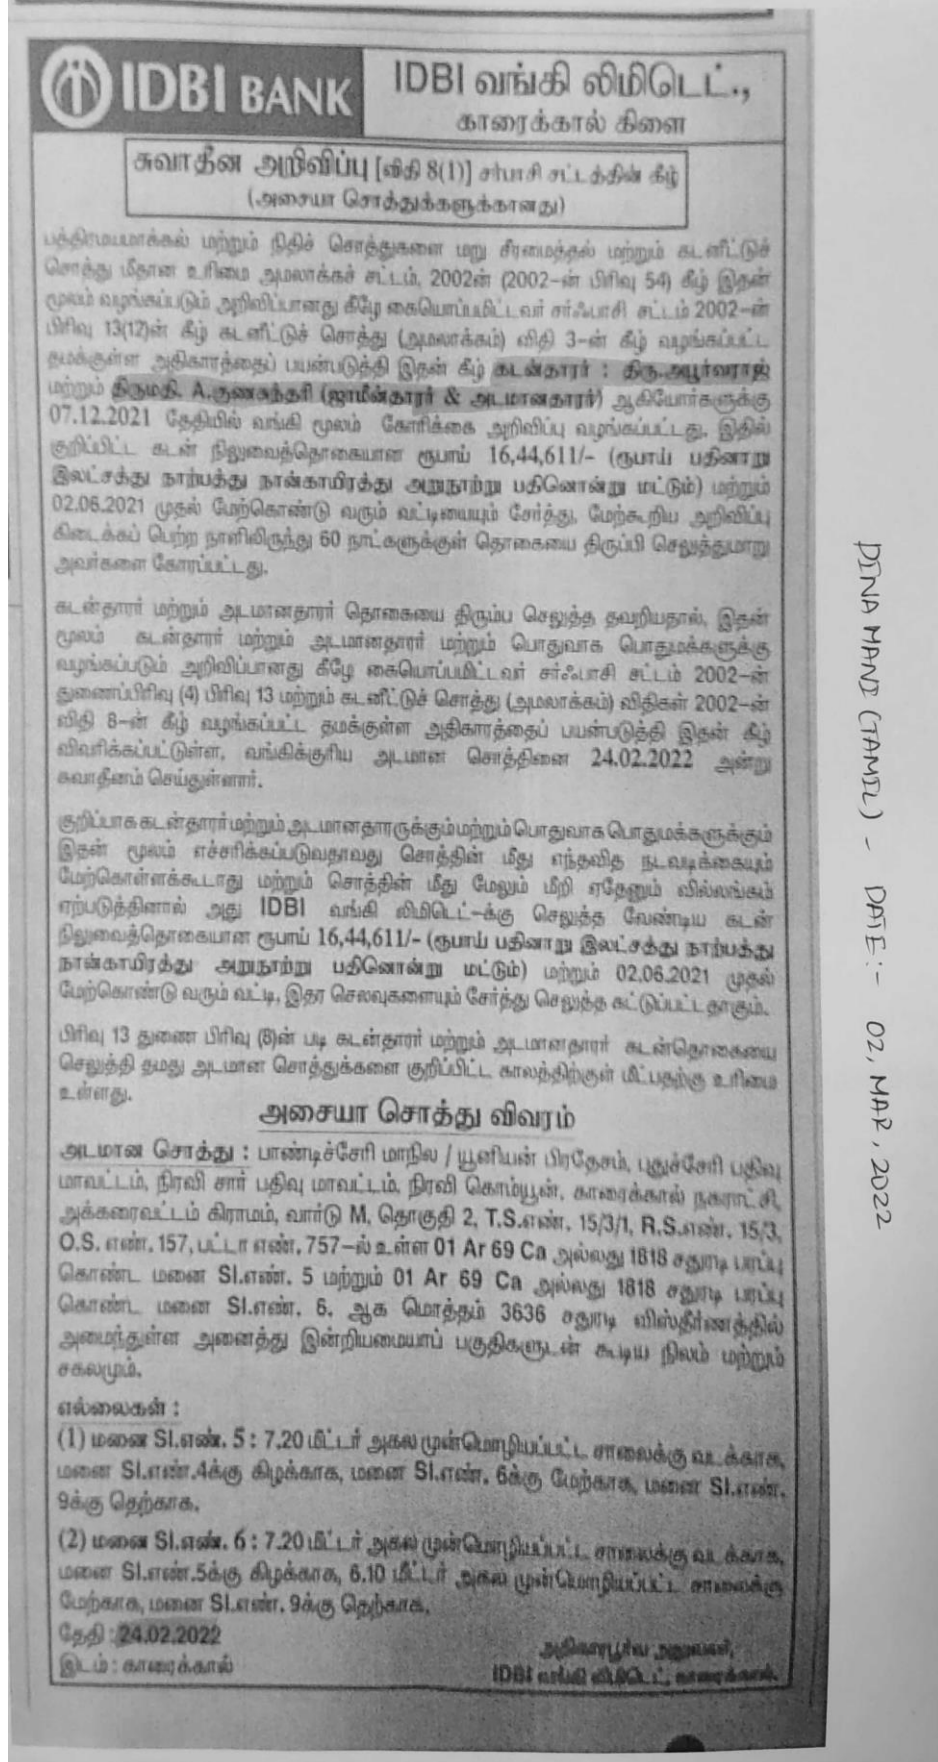 IDBI BANK
IDBI வங்கி லிமிடெட்.,
காரைக்கால் கிளை
சுவாதீன அறிவிப்பு [விதி 8(1)] சர்பாசி சட்டத்தின் கீழ்
(அசையா சொத்துக்களுக்கானது)
பத்திரமயமாக்கல் மற்றும் நிதிச் சொத்துகளை மறு சீரமைத்தல் மற்றும் கடனீட்டுச்
சொத்து மீதான உரிமை அமலாக்கச் சட்டம், 2002ன் (2002-ன் பிரிவு 54) கீழ் இதன்
மூலம் வழங்கப்படும் அறிவிப்பானது கீழே கையொப்பமிட்டவர் சர்ஃபாசி சட்டம் 2002-ன்
பிரிவு 13(12)ன் கீழ் கடனீட்டுச் சொத்து (அமலாக்கம்) விதி 3-ன் கீழ் வழங்கப்பட்ட
தமக்குள்ள அதிகாரத்தைப் பயன்படுத்தி இதன் கீழ் கடன்தாரர் : திரு.அபூர்வராஜ்
மற்றும் திருமதி. A.குணசுந்தரி (ஜாமீன்தாரர் & அடமானதாரர்) ஆகியோர்களுக்கு
07.12.2021 தேதியில் வங்கி மூலம் கோரிக்கை அறிவிப்பு வழங்கப்பட்டது. இதில்
குறிப்பிட்ட கடன் நிலுவைத்தொகையான ரூபாய் 16,44,611/- (ரூபாய் பதினாறு
இலட்சத்து நாற்பத்து நான்காயிரத்து அறுநூற்று பதினொன்று மட்டும்) மற்றும்
02.06.2021 முதல் மேற்கொண்டு வரும் வட்டியையும் சேர்த்து, மேற்கூறிய அறிவிப்பு
கிடைக்கப் பெற்ற நாளிலிருந்து 60 நாட்களுக்குள் தொகையை திருப்பி செலுத்துமாறு
அவர்களை கோரப்பட்டது.
கடன்தாரர் மற்றும் அடமானதாரர் தொகையை திரும்ப செலுத்த தவறியதால், இதன்
மூலம் கடன்தாரர் மற்றும் அடமானதாரர் மற்றும் பொதுவாக பொதுமக்களுக்கு
வழங்கப்படும் அறிவிப்பானது கீழே கையொப்பமிட்டவர் சர்ஃபாசி சட்டம் 2002-ன்
துணைப்பிரிவு (4) பிரிவு 13 மற்றும் கடனீட்டுச் சொத்து (அமலாக்கம்) விதிகள் 2002-ன்
விதி 8-ன் கீழ் வழங்கப்பட்ட தமக்குள்ள அதிகாரத்தைப் பயன்படுத்தி இதன் கீழ்
விவரிக்கப்பட்டுள்ள, வங்கிக்குரிய அடமான சொத்தினை 24.02.2022 அன்று
சுவாதீனம் செய்துள்ளார்.
குறிப்பாக கடன்தாரர் மற்றும் அடமானதாரருக்கும் மற்றும் பொதுவாக பொதுமக்களுக்கும்
இதன் மூலம் எச்சரிக்கப்படுவதாவது சொத்தின் மீது எந்தவித நடவடிக்கையும்
மேற்கொள்ளக்கூடாது மற்றும் சொத்தின் மீது மேலும் மீறி ஏதேனும் வில்லங்கம்
ஏற்படுத்தினால் அது IDBI வங்கி லிமிடெட்-க்கு செலுத்த வேண்டிய கடன்
நிலுவைத்தொகையான ரூபாய் 16,44,611/- (ரூபாய் பதினாறு இலட்சத்து நாற்பத்து
நான்காயிரத்து அறுநாற்று பதினொன்று மட்டும்) மற்றும் 02.06.2021 முதல்
மேற்கொண்டு வரும் வட்டி, இதர செலவுகளையும் சேர்த்து செலுத்த கட்டுப்பட்டதாகும்.
பிரிவு 13 துணை பிரிவு (8)ன் படி கடன்தாரர் மற்றும் அடமானதாரர் கடன்தொகையை
செலுத்தி தமது அடமான சொத்துக்களை குறிப்பிட்ட காலத்திற்குள் மீட்பதற்கு உரிமை
உள்ளது.
அசையா சொத்து விவரம்
அடமான சொத்து : பாண்டிச்சேரி மாநில / யூனியன் பிரதேசம், புதுச்சேரி பதிவு
மாவட்டம், நிரவி சார் பதிவு மாவட்டம், நிரவி கொம்யூன், காரைக்கால் நகராட்சி,
அக்கரைவட்டம் கிராமம், வார்டு M, தொகுதி 2, T.S.எண். 15/3/1, R.S.எண். 15/3,
O.S. எண். 157, பட்டா எண். 757-ல் உள்ள 01 Ar 69 Ca அல்லது 1818 சதுரடி பரப்பு
கொண்ட மனை Sl.எண். 5 மற்றும் 01 Ar 69 Ca அல்லது 1818 சதுரடி பரப்பு
கொண்ட மனை Sl.எண். 6. ஆக மொத்தம் 3636 சதுரடி விஸ்தீர்ணத்தில்
அமைந்துள்ள அனைத்து இன்றியமையாப் பகுதிகளுடன் கூடிய நிலம் மற்றும்
சகலமும்.
எல்லைகள் :
(1) மனை Sl.எண். 5 : 7.20 மீட்டர் அகல முன்மொழியப்பட்ட சாலைக்கு வடக்காக,
மனை Sl.எண்.4க்கு கிழக்காக, மனை Sl.எண். 6க்கு மேற்காக, மனை Sl.எண்.
9க்கு தெற்காக.
(2) மனை Sl.எண். 6 : 7.20 மீட்டர் அகல முன்மொழியப்பட்ட சாலைக்கு வடக்காக,
மனை Sl.எண்.5க்கு கிழக்காக, 6.10 மீட்டர் அகல முன்மொழியப்பட்ட சாலைக்கு
மேற்காக, மனை Sl.எண். 9க்கு தெற்காக.
தேதி : 24.02.2022
இடம் : காரைக்கால்
அதிகாரபூர்வ அலுவலர்,
IDBI வங்கி லிமிடெட், காரைக்கால்.
DINA MANI (TAMIL) - DATE:- 02, MAR, 2022